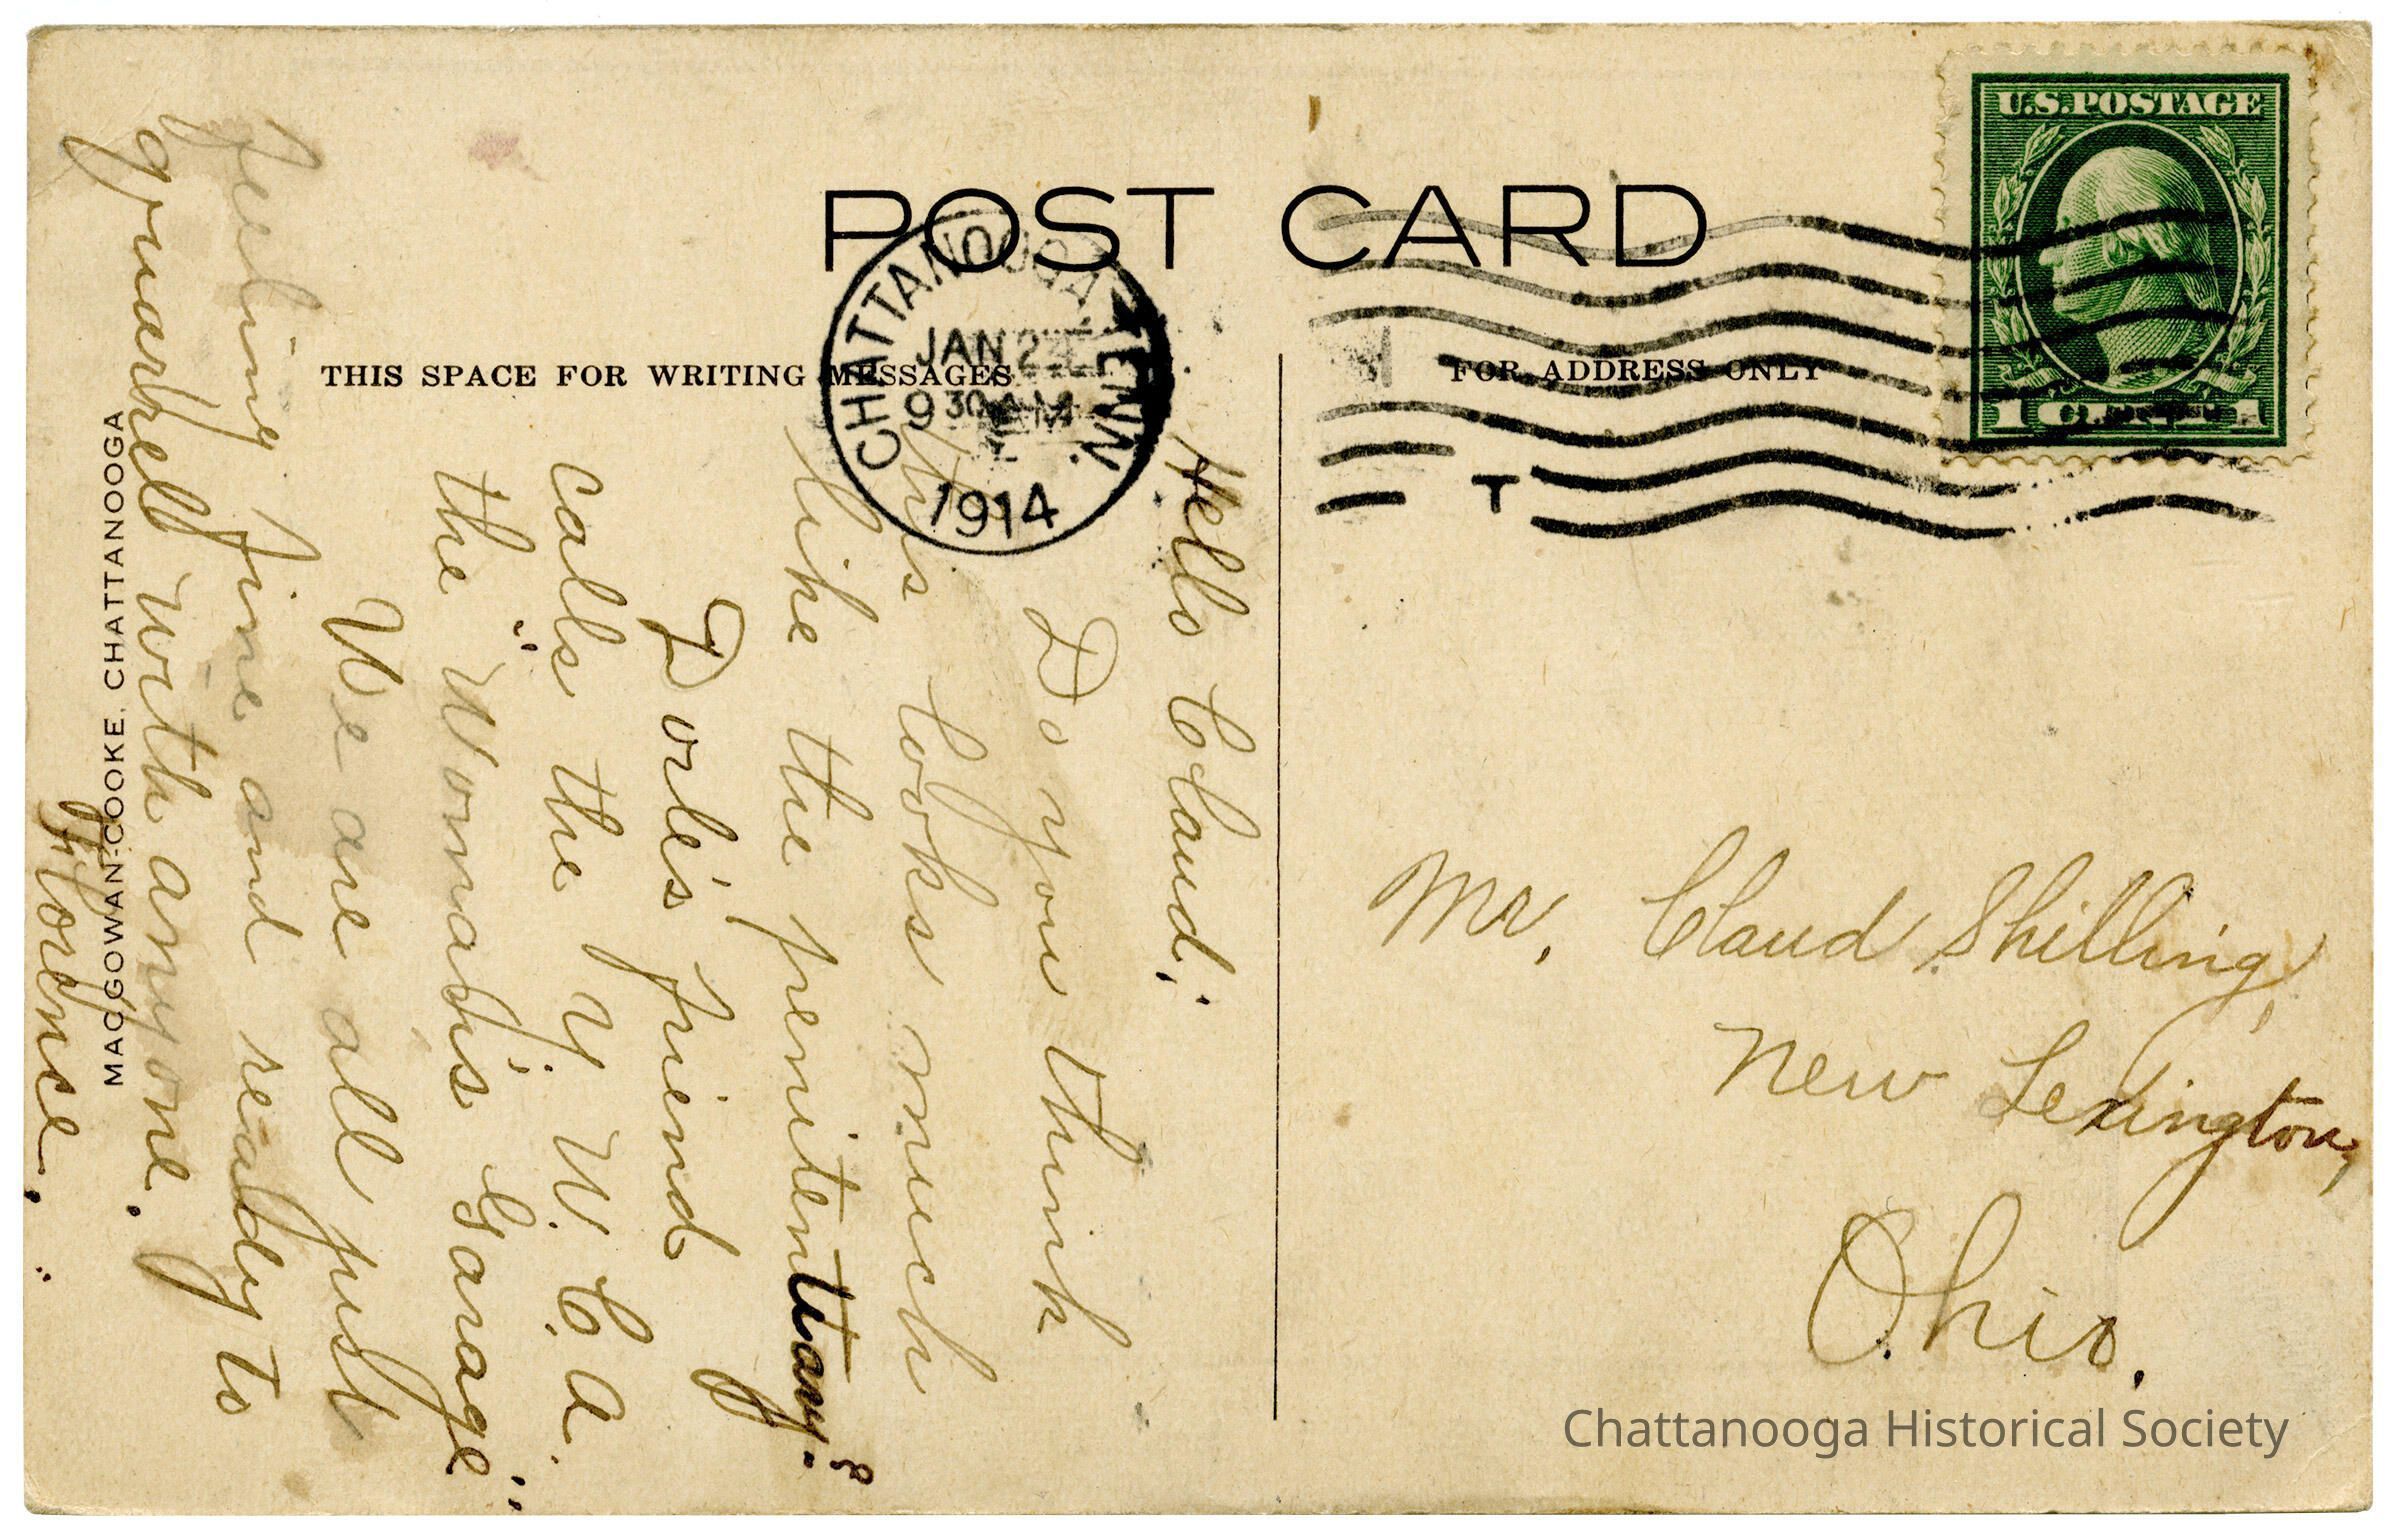 POST CARD
THIS SPACE FOR WRITING MESSAGES
FOR ADDRESS ONLY
U.S. POSTAGE
1 CENT 1
CHATTANOOGA TENN.
JAN 22
9 30 AM
1914
T
Hello Claud;
Do you think
this looks much
like the penitentiary?
Dorle's friend
calls the Y.W.C.A.
the "Woman's Garage"
We are all just
feeling fine and ready to
quarrell with anyone.
Florence.
MACGOWAN-COOKE, CHATTANOOGA
Mr. Claud Shilling,
New Lexington,
Ohio.
Chattanooga Historical Society